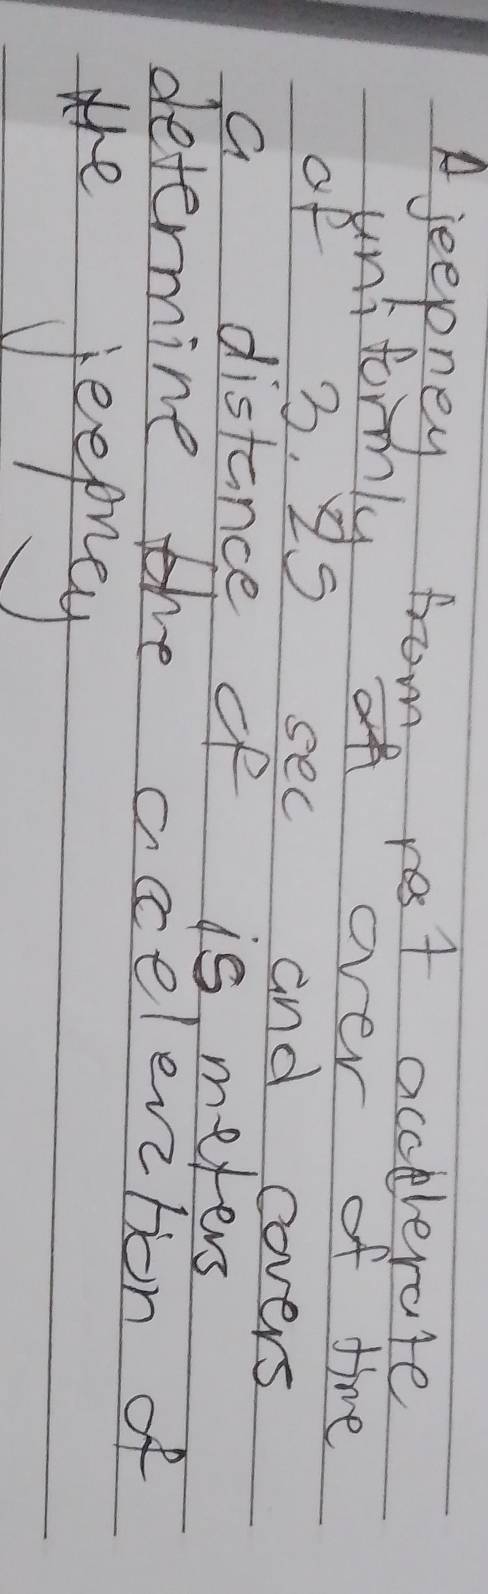 A jeepney from rest accelerate
uniformly over of time
of 3.25 sec and covers
a distance of 15 meters
determine the accelenztion of
the jeepney